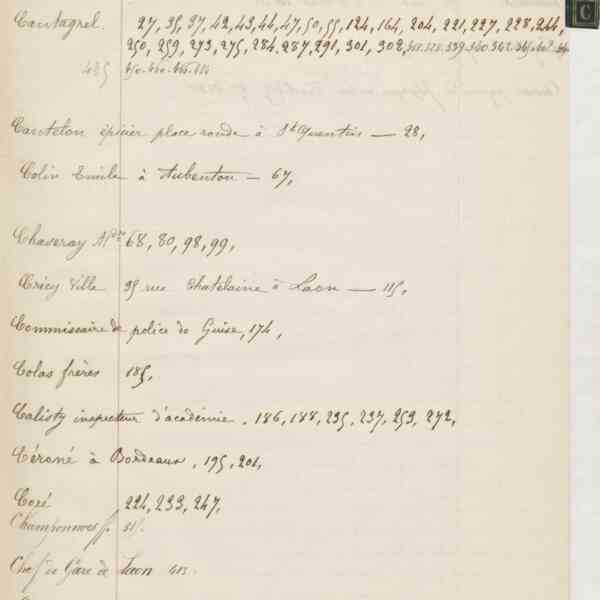 C
Cantagrel. 27, 35, 37, 42, 43, 44, 47, 50, 55, 124, 164, 204, 221, 227, 228, 244,
250, 259, 273, 275, 284, 287, 291, 301, 302,
Cantelon épicier place ronde à St Quentin — 28,
Colin Emile à Aubenton — 67,
Chaveray 68, 80, 98, 99,
Crécy Ville 35 rue Chatelaine à Laon — 115,
Commissaire de police de Guise, 174,
Colas frères 185,
Calisty inspecteur d'académie. 186, 188, 235, 237, 253, 272,
Cérané à Bordeaux, 195, 201,
Coré 224, 233, 247,
Chef de Gare de Laon